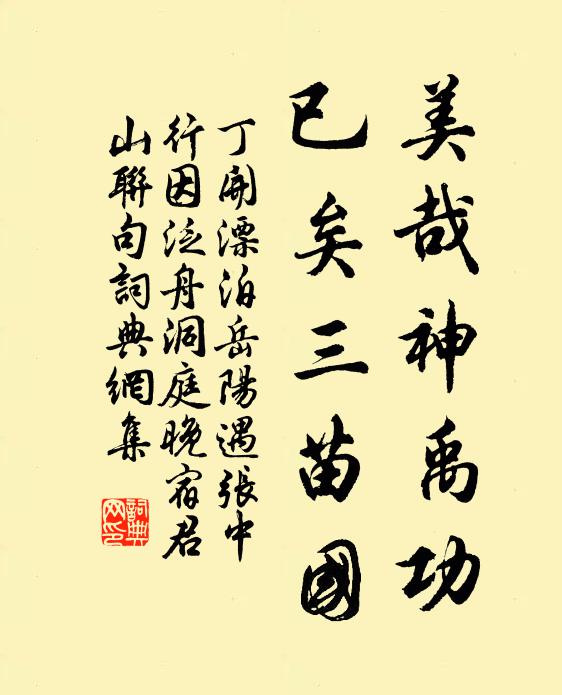 美哉神禹功
已矣三苗國
丁開漂泊岳陽遇張中
行因泛舟洞庭晚宿君
山聯句詞典網集
詞典网印